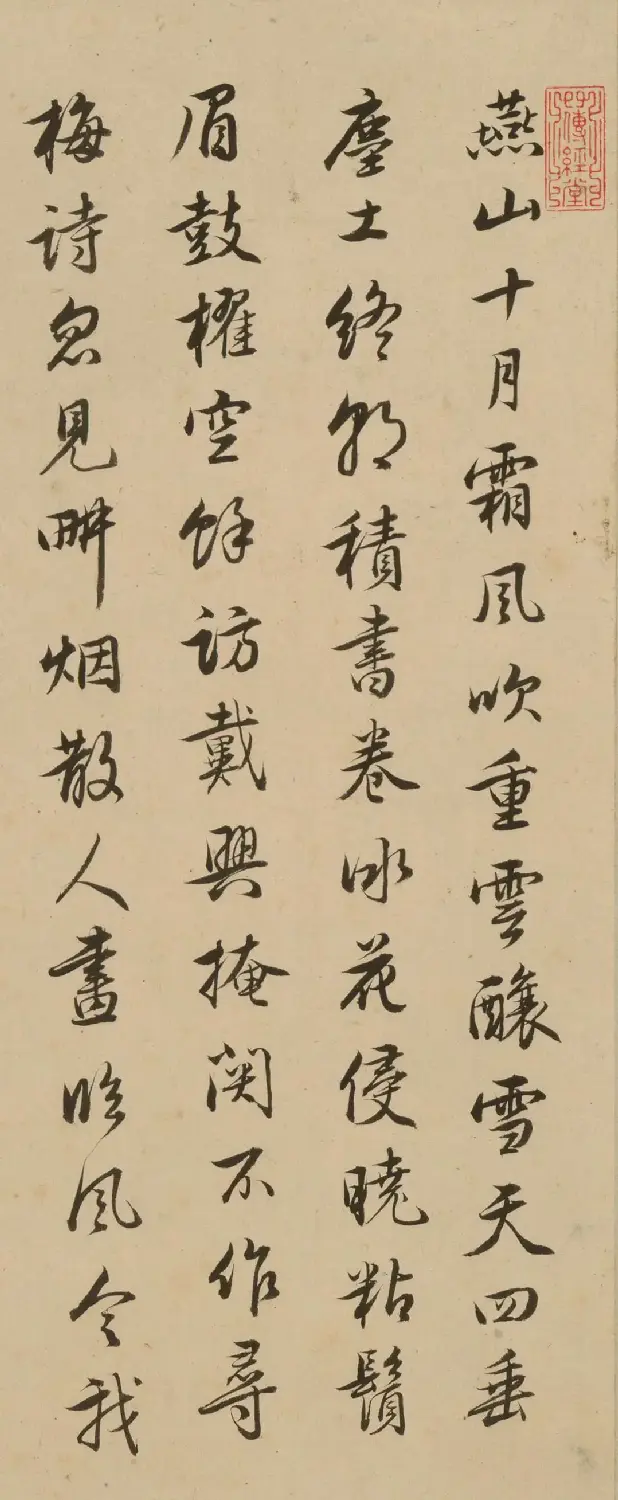 傳經堂
燕山十月霜風吹重雲釀雪天四垂
塵土終朝積書卷冰花侵曉粘鬚
眉鼓櫂空餘訪戴興掩関不作尋
梅詩忽見畊烟散人畫臨風令我